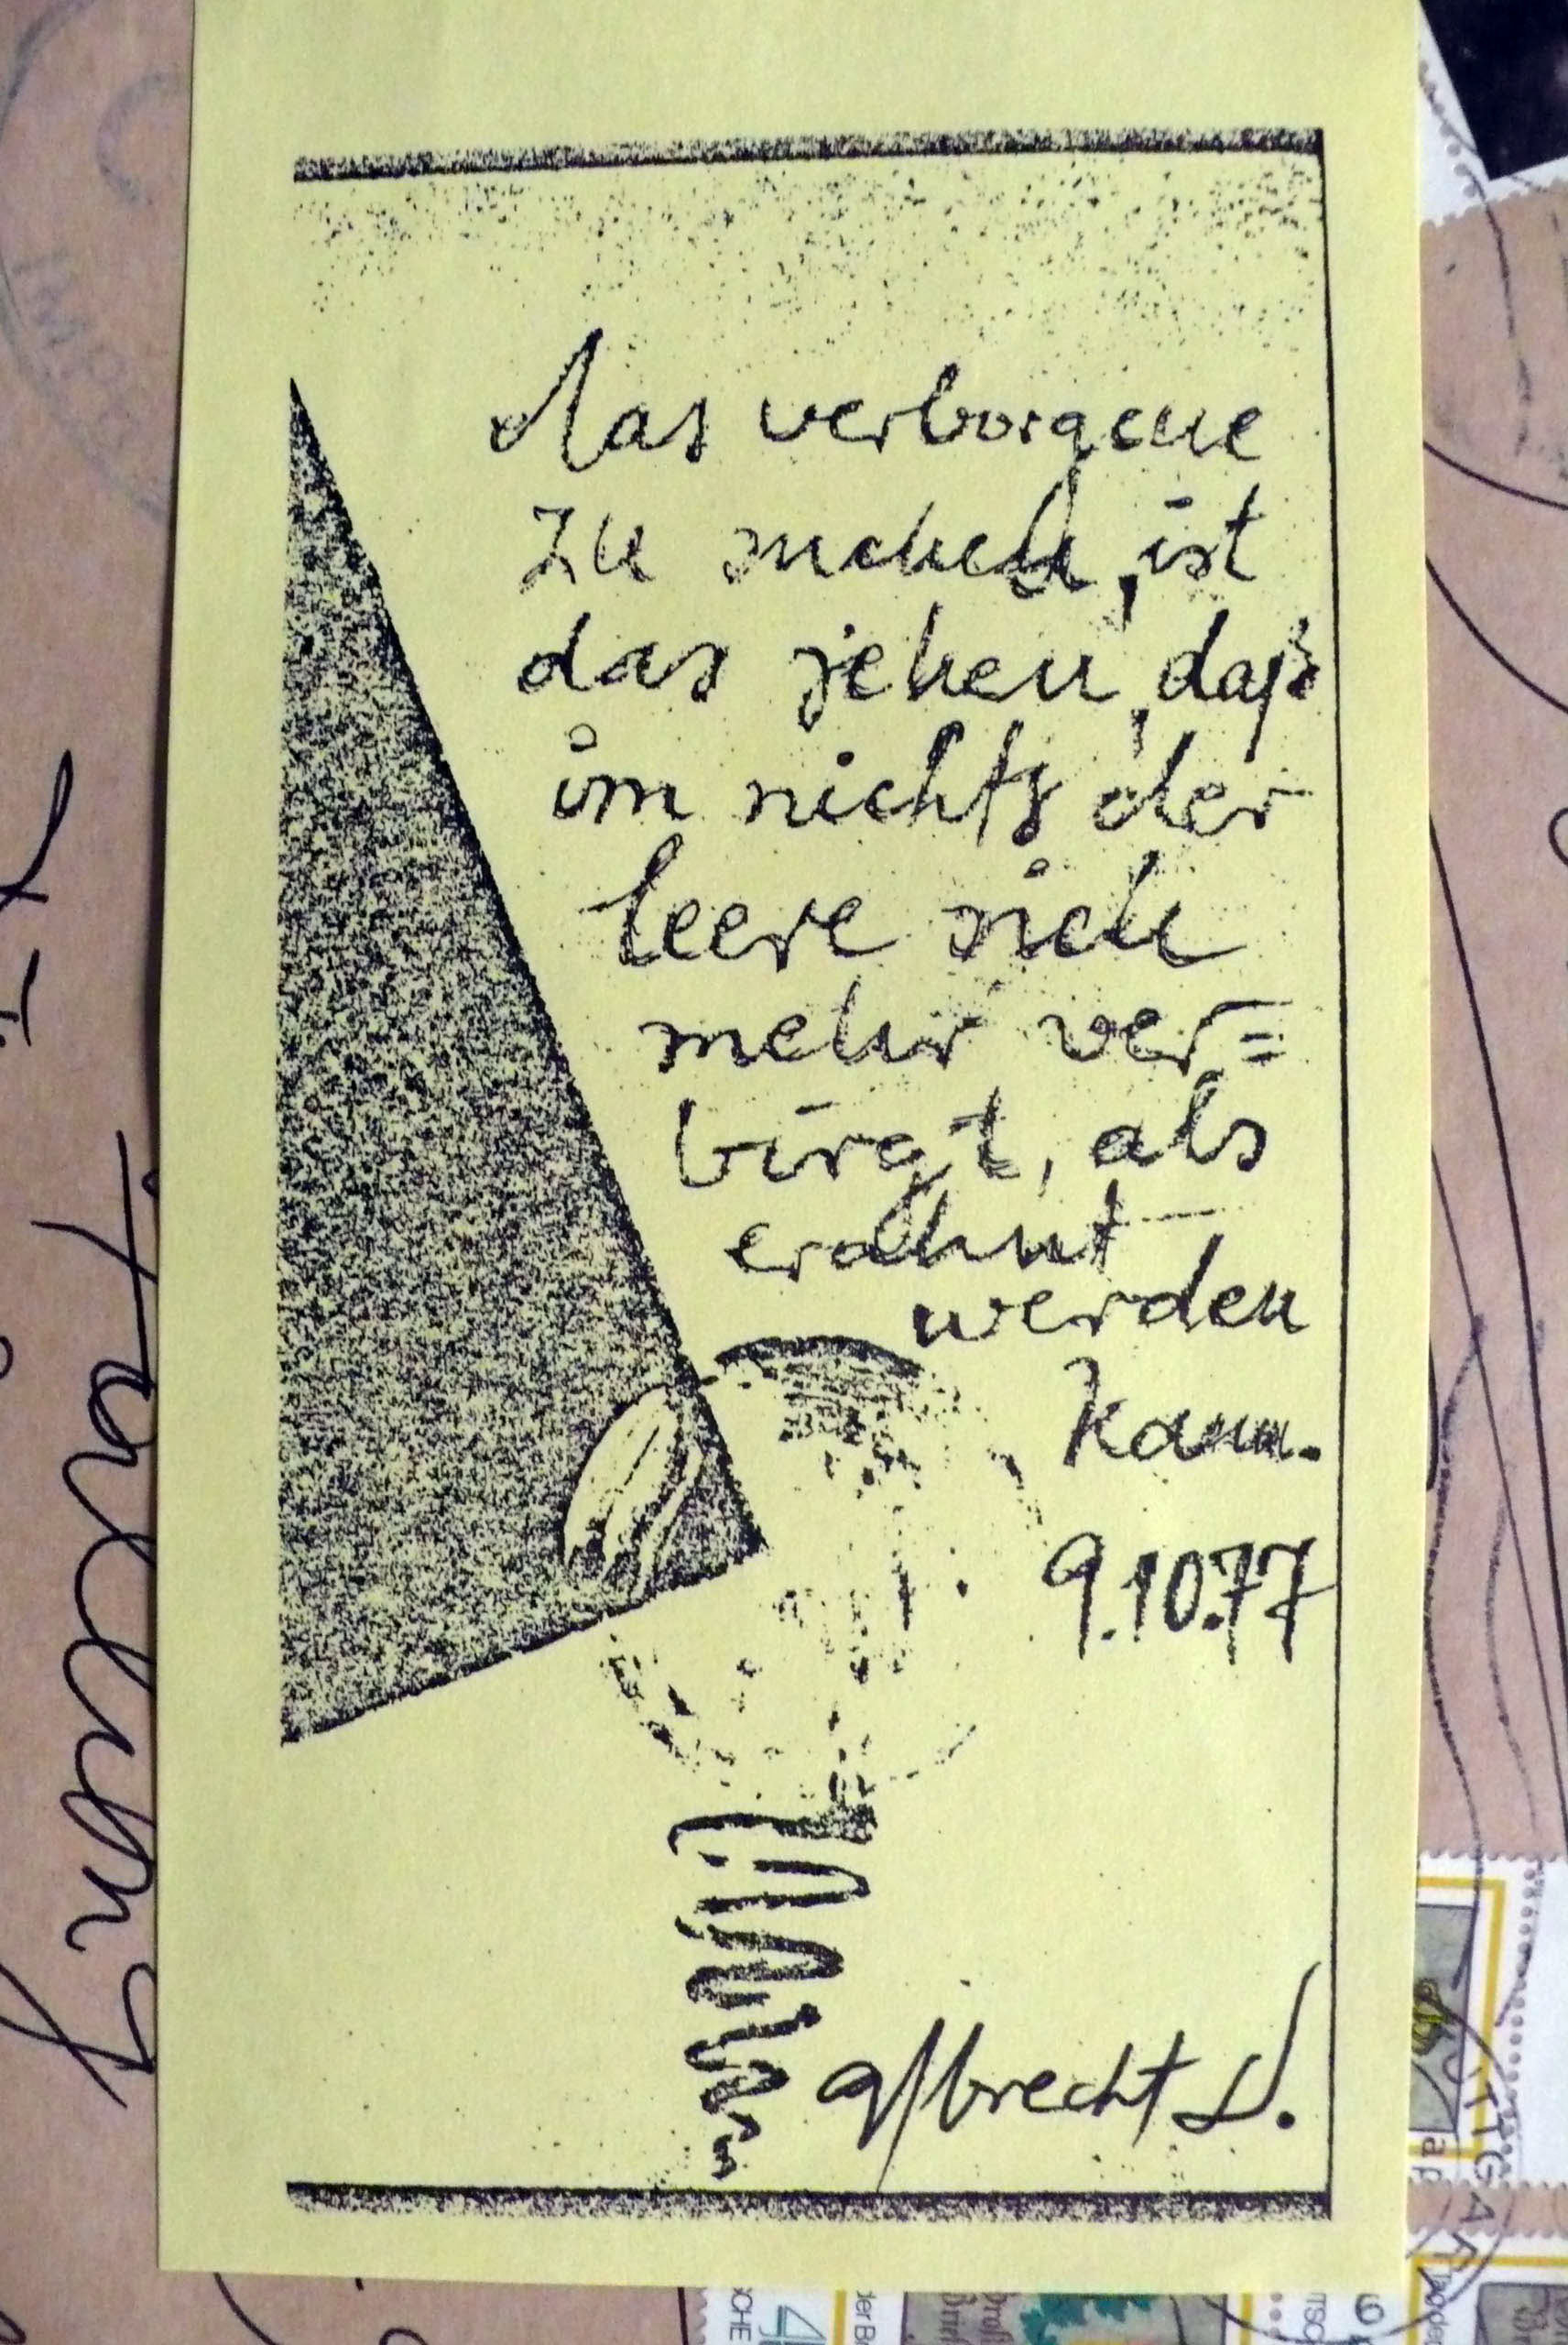 das verborgene
zu suchen, ist
das sehen, daß
im nichts der
leere sich
mehr ver=
birgt, als
erahnt
werden
kann.
9.10.77
albrecht D.